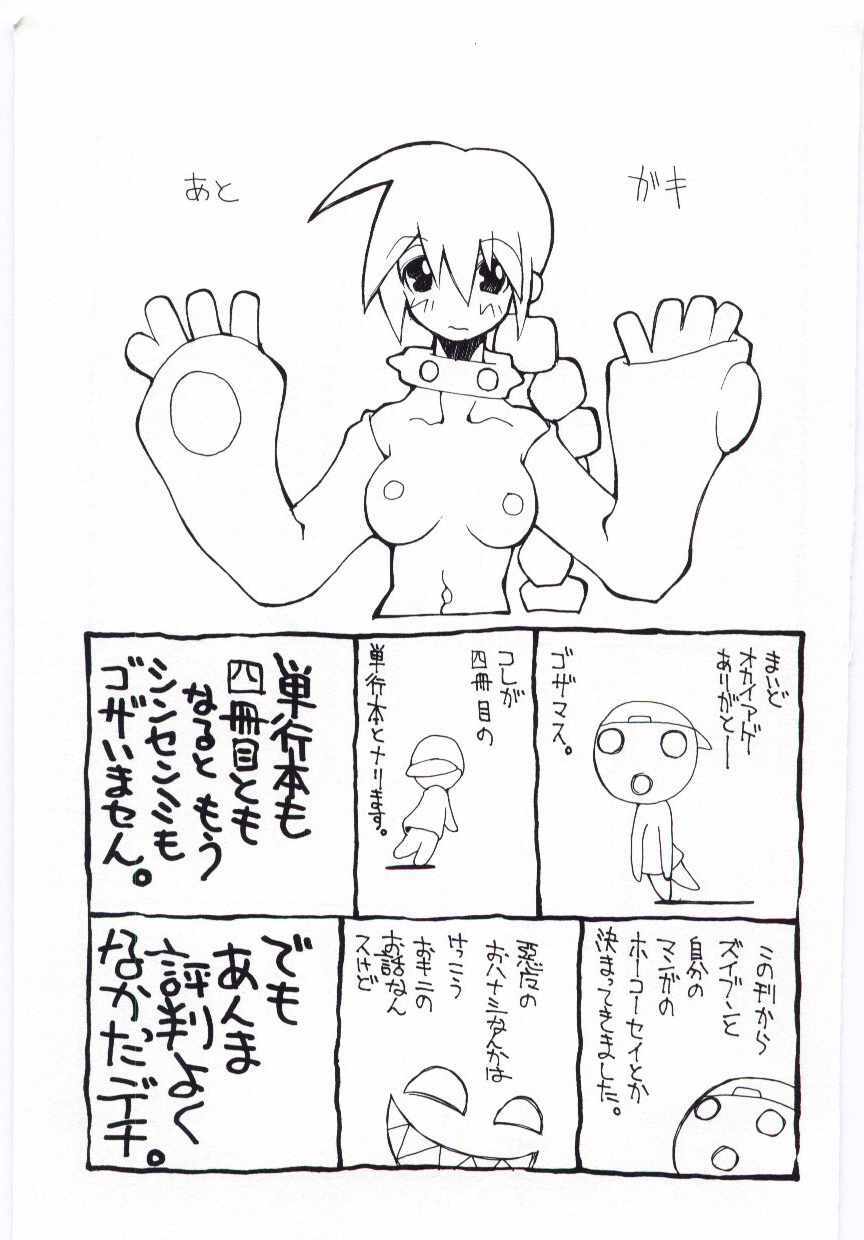 あとガキ
まいど
オカイアゲ
ありがと――
ゴザマス。
コレが
四冊目の
単行本とナリます。
単行本も
四冊目とも
なるともう
シンセンミも
ゴザいません。
この刊から
ズイブンと
自分の
マンガの
ホーコーセイとか
決まってきました。
悪役の
おハナシなんかは
けっこう
おキニの
お話なん
スけど
でも
あんま
評判よく
なかったデチ。